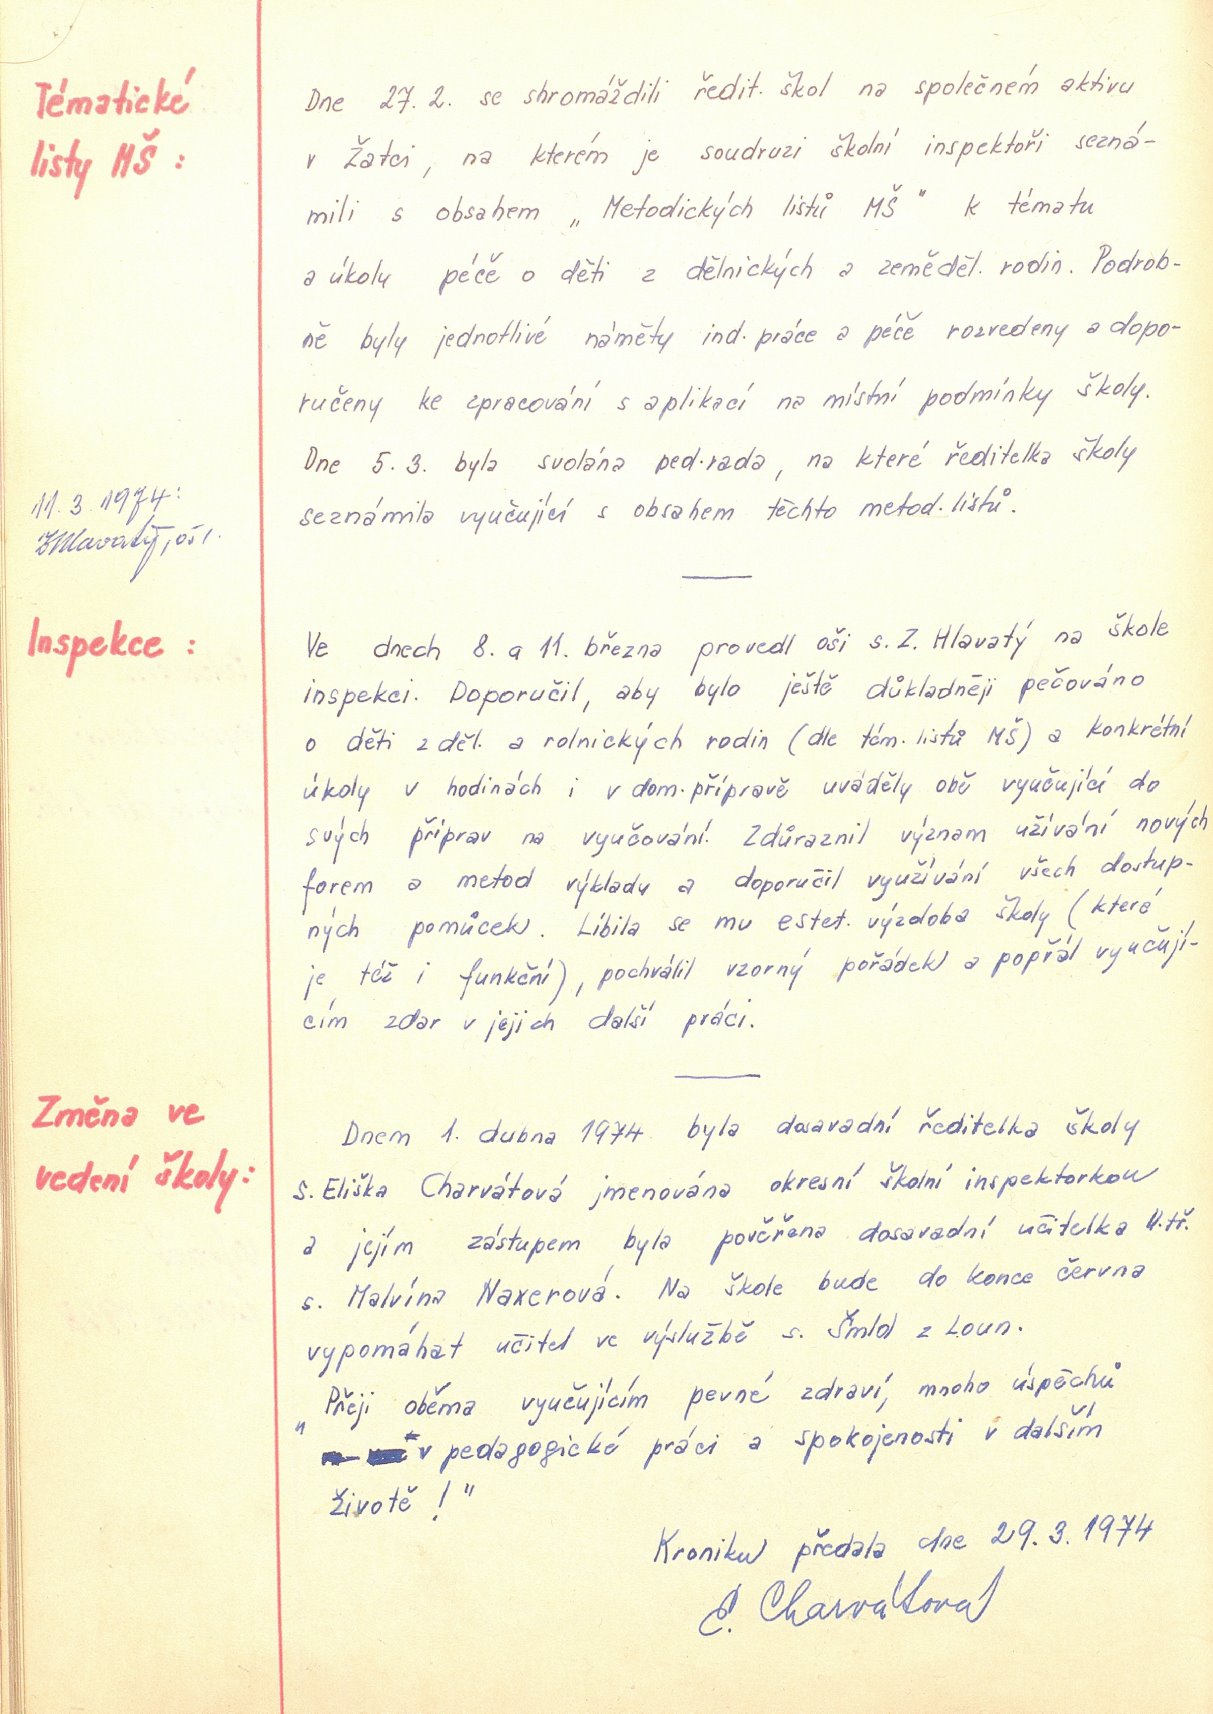 Tématické
listy MŠ :
Dne 27. 2. se shromáždili ředit. škol na společném aktivu
v Žatci, na kterém je soudruzi školní inspektoři sezná-
mili s obsahem „Metodických listů MŠ" k tématu
a úkolu péčě o děti z dělnických a zeměděl. rodin. Podrob-
ně byly jednotlivé náměty ind. práce a péčě rozvedeny a dopo-
ručeny ke zpracování s aplikací na místní podmínky školy.
Dne 5. 3. byla svolána ped. rada, na které ředitelka školy
seznámila vyučující s obsahem těchto metod. listů.
11. 3. 1974:
ZHlavatý, oši.
Inspekce :
Ve dnech 8. a 11. března provedl oši s. Z. Hlavatý na škole
inspekci. Doporučil, aby bylo ještě důkladněji pečováno
o děti z děl. a rolnických rodin (dle tém. listů MŠ) a konkrétní
úkoly v hodinách i v dom. přípravě uváděly obě vyučující do
svých příprav na vyučování. Zdůraznil význam užívání nových
forem a metod výkladu a doporučil využívání všech dostup-
ných pomůcek. Líbila se mu estet. výzdoba školy (která
je též i funkční), pochválil vzorný pořádek a popřál vyučují-
cím zdar v jejich další práci.
Změna ve
vedení školy:
Dnem 1. dubna 1974 byla dosavadní ředitelka školy
s. Eliška Charvátová jmenována okresní školní inspektorkou
a jejím zástupem byla pověřena dosavadní učitelka II. tř.
s. Malvína Naxerová. Na škole bude do konce června
vypomáhat učitel ve výslužbě s. Šmíd z Loun.
„Přeji oběma vyučujícím pevné zdraví, mnoho úspěchů
v pedagogické práci a spokojenosti v dalším
životě!"
Kroniku předala dne 29. 3. 1974
E. Charvátová